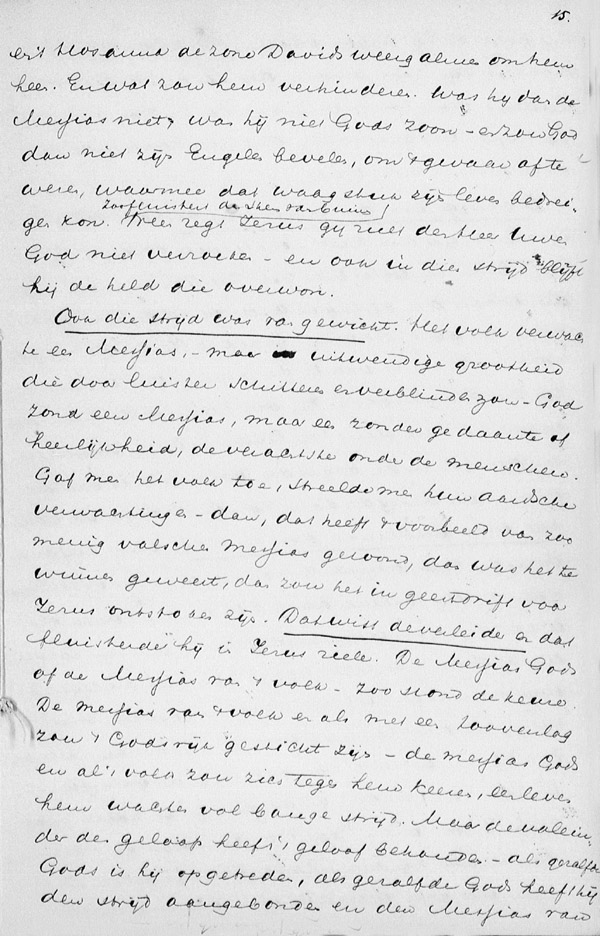 15.
en 't Hosanna de zone Davids weergalme om hem
heen. En wat zou hem verhinderen. Was hij dan de
Messias niet, was hij niet Gods Zoon - en zou God
dan niet zijn Engelen bevelen, om 't gevaar af te
weren, waarmee dat waagstuk zijn leven bedrei-
zoo fluistert de
gen kon. Neen zegt Jezus gij zult den Heer Uwen
God niet verzoeken - en ook in dien strijd blijft
hij de held die overwon.
Ook die strijd was van gewicht. Het volk verwach
te een Messias, - maar uitwendige grootheid
die door luister schitteren en verblinden zou - God
zond een Messias, maar een zonder gedaante of
heerlijkheid, de verachtste onder de menschen.
Gaf men het volk toe, streelde men hun aardsche
verwachtingen - dan, dat heeft 't voorbeeld van zoo
menig valschen Messias getoond, dan was het te
winnen geweest, dan zou het in geestdrift voor
Jezus ontstoken zijn. Dat wist de verleider en dat
fluisterde hij in Jezus ziele. De Messias Gods
of de Messias van 't volk - zoo stond de keuze.
De Messias van 't volk en als met een tooverslag
zou 't Godsrijk gesticht zijn - de Messias Gods
en al 't volk zou zich tegen hem keeren, een leven
hem wachten vol bange strijd. Maar de volein-
der des geloofs heeft 't geloof behouden - als gezalfde
Gods is hij opgetreden, als gezalfde Gods heeft hij
den strijd aangebonden en den Messias van